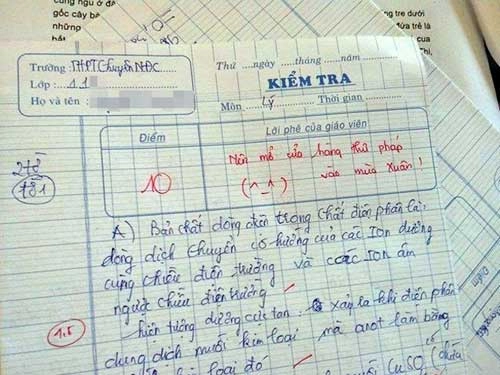 cung ngu ở đâ
gốc cây bà
những
ng tre dưới
đứa trẻ là
Thứ ...ngày ......tháng ......năm ......
Trường THPT Chuyên NĐC
KIỂM TRA
Lớp: 11
Họ và tên:
Môn Lý Thời gian
Điểm
Lời phê của giáo viên
10
Nên mở cửa hàng thư pháp
(^_^) vào mùa Xuân!
A) Bản chất dòng điện trong chất điện phân là:
dòng dịch chuyển có hướng của các Ion dương
cùng chiều điện trường và các ION âm
ngược chiều điện trường
1.5
- hiện tượng dương cực tan: xảy ra khi điện phân
dung dịch muối kim loại mà anot làm bằng
kim loại đó
muối CuSO4